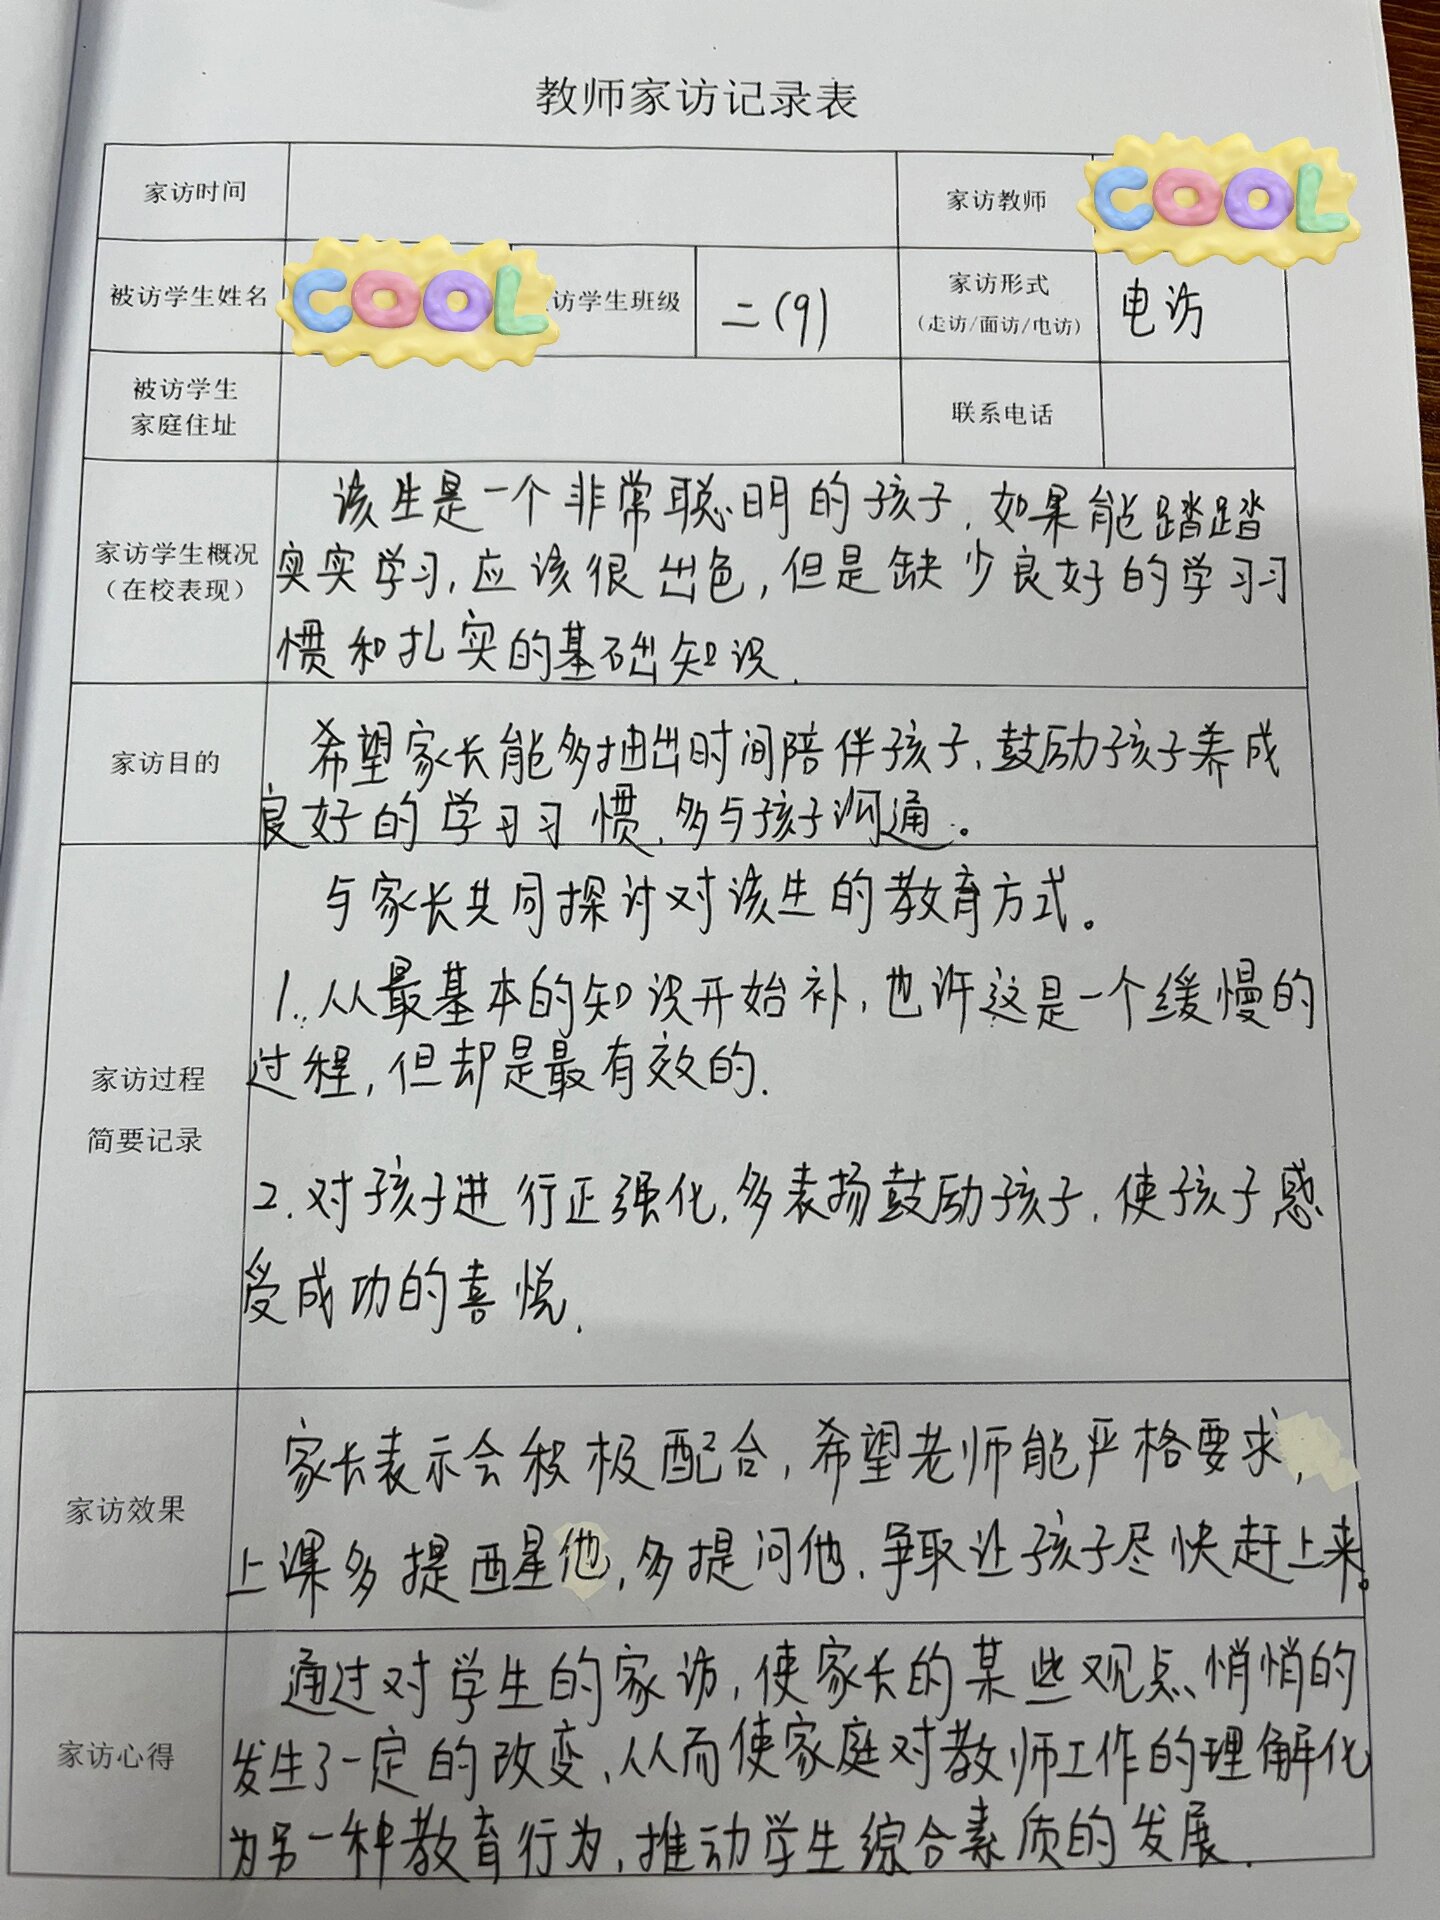 教师家访记录表
家访时间
家访教师
COOL
被访学生姓名
COOL
访学生班级
二(9)
家访形式
(走访/面访/电访)
电访
被访学生
家庭住址
联系电话
家访学生概况
（在校表现）
该生是一个非常聪明的孩子,如果能踏踏
实实学习,应该很出色,但是缺少良好的学习习
惯和扎实的基础知识.
家访目的
希望家长能多抽出时间陪伴孩子,鼓励孩子养成
良好的学习习惯,多与孩子沟通。
家访过程
简要记录
与家长共同探讨对该生的教育方式。
1.从最基本的知识开始补,也许这是一个缓慢的
过程,但却是最有效的.
2.对孩子进行正强化,多表扬鼓励孩子,使孩子感
受成功的喜悦.
家访效果
家长表示会积极配合,希望老师能严格要求,
上课多提西星他,多提问他,争取让孩子尽快赶上来。
家访心得
通过对学生的家访,使家长的某些观点、悄悄的
发生了一定的改变,从而使家庭对教师工作的理解化
为另一种教育行为,推动学生综合素质的发展.